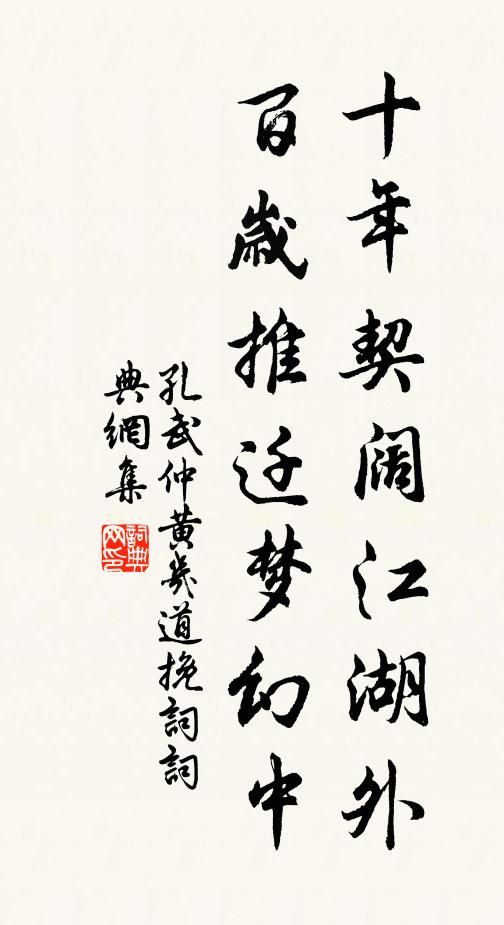 十年契阔江湖外
百歲推迁梦幻中
孔武仲黄幾道挽詞詞
典網集
詞典
网印